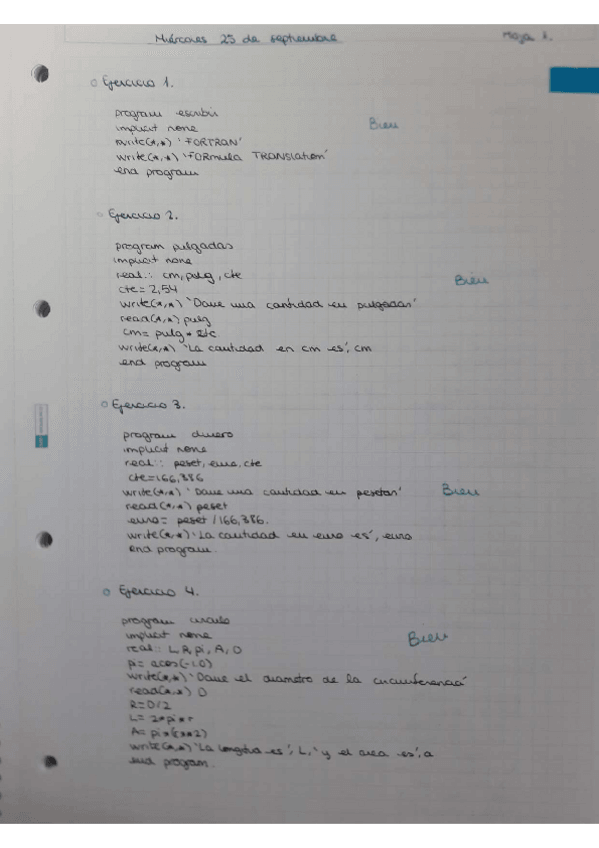 Miércoles 25 de septiembre
Hoja 1.
Ejercicio 1.
program escribir
implicit none
write(*,*) 'FORTRAN'
write(*,*) 'FORmula TRANslation'
end program
Bien
Ejercicio 2.
program pulgadas
implicit none
real:: cm, pulg, cte
cte=2,54
write(*,*) 'Dame una cantidad en pulgadas'
read(*,*) pulg
cm= pulg * 
write(*,*) 'La cantidad en cm es', cm
end program
Bien
Ejercicio 3.
program dinero
implicit none
real:: peset, euro, cte
cte=166,386
write(*,*) 'Dame una cantidad en pesetas'
read(*,*) peset
euro= peset /166,386.
write(*,*) 'La cantidad en euro es', euro
end program.
Bien
Ejercicio 4.
program circulo
implicit none
real:: L, R, pi, A, D
pi= acos(-1.0)
write(*,*) 'Dame el diametro de la circunferencia'
read(*,*) D
R=D/2
L= 2*pi*r
A= pi*(r**2)
write(*,*) 'La longitud es', L, 'y el area es', a
end program.
Bien